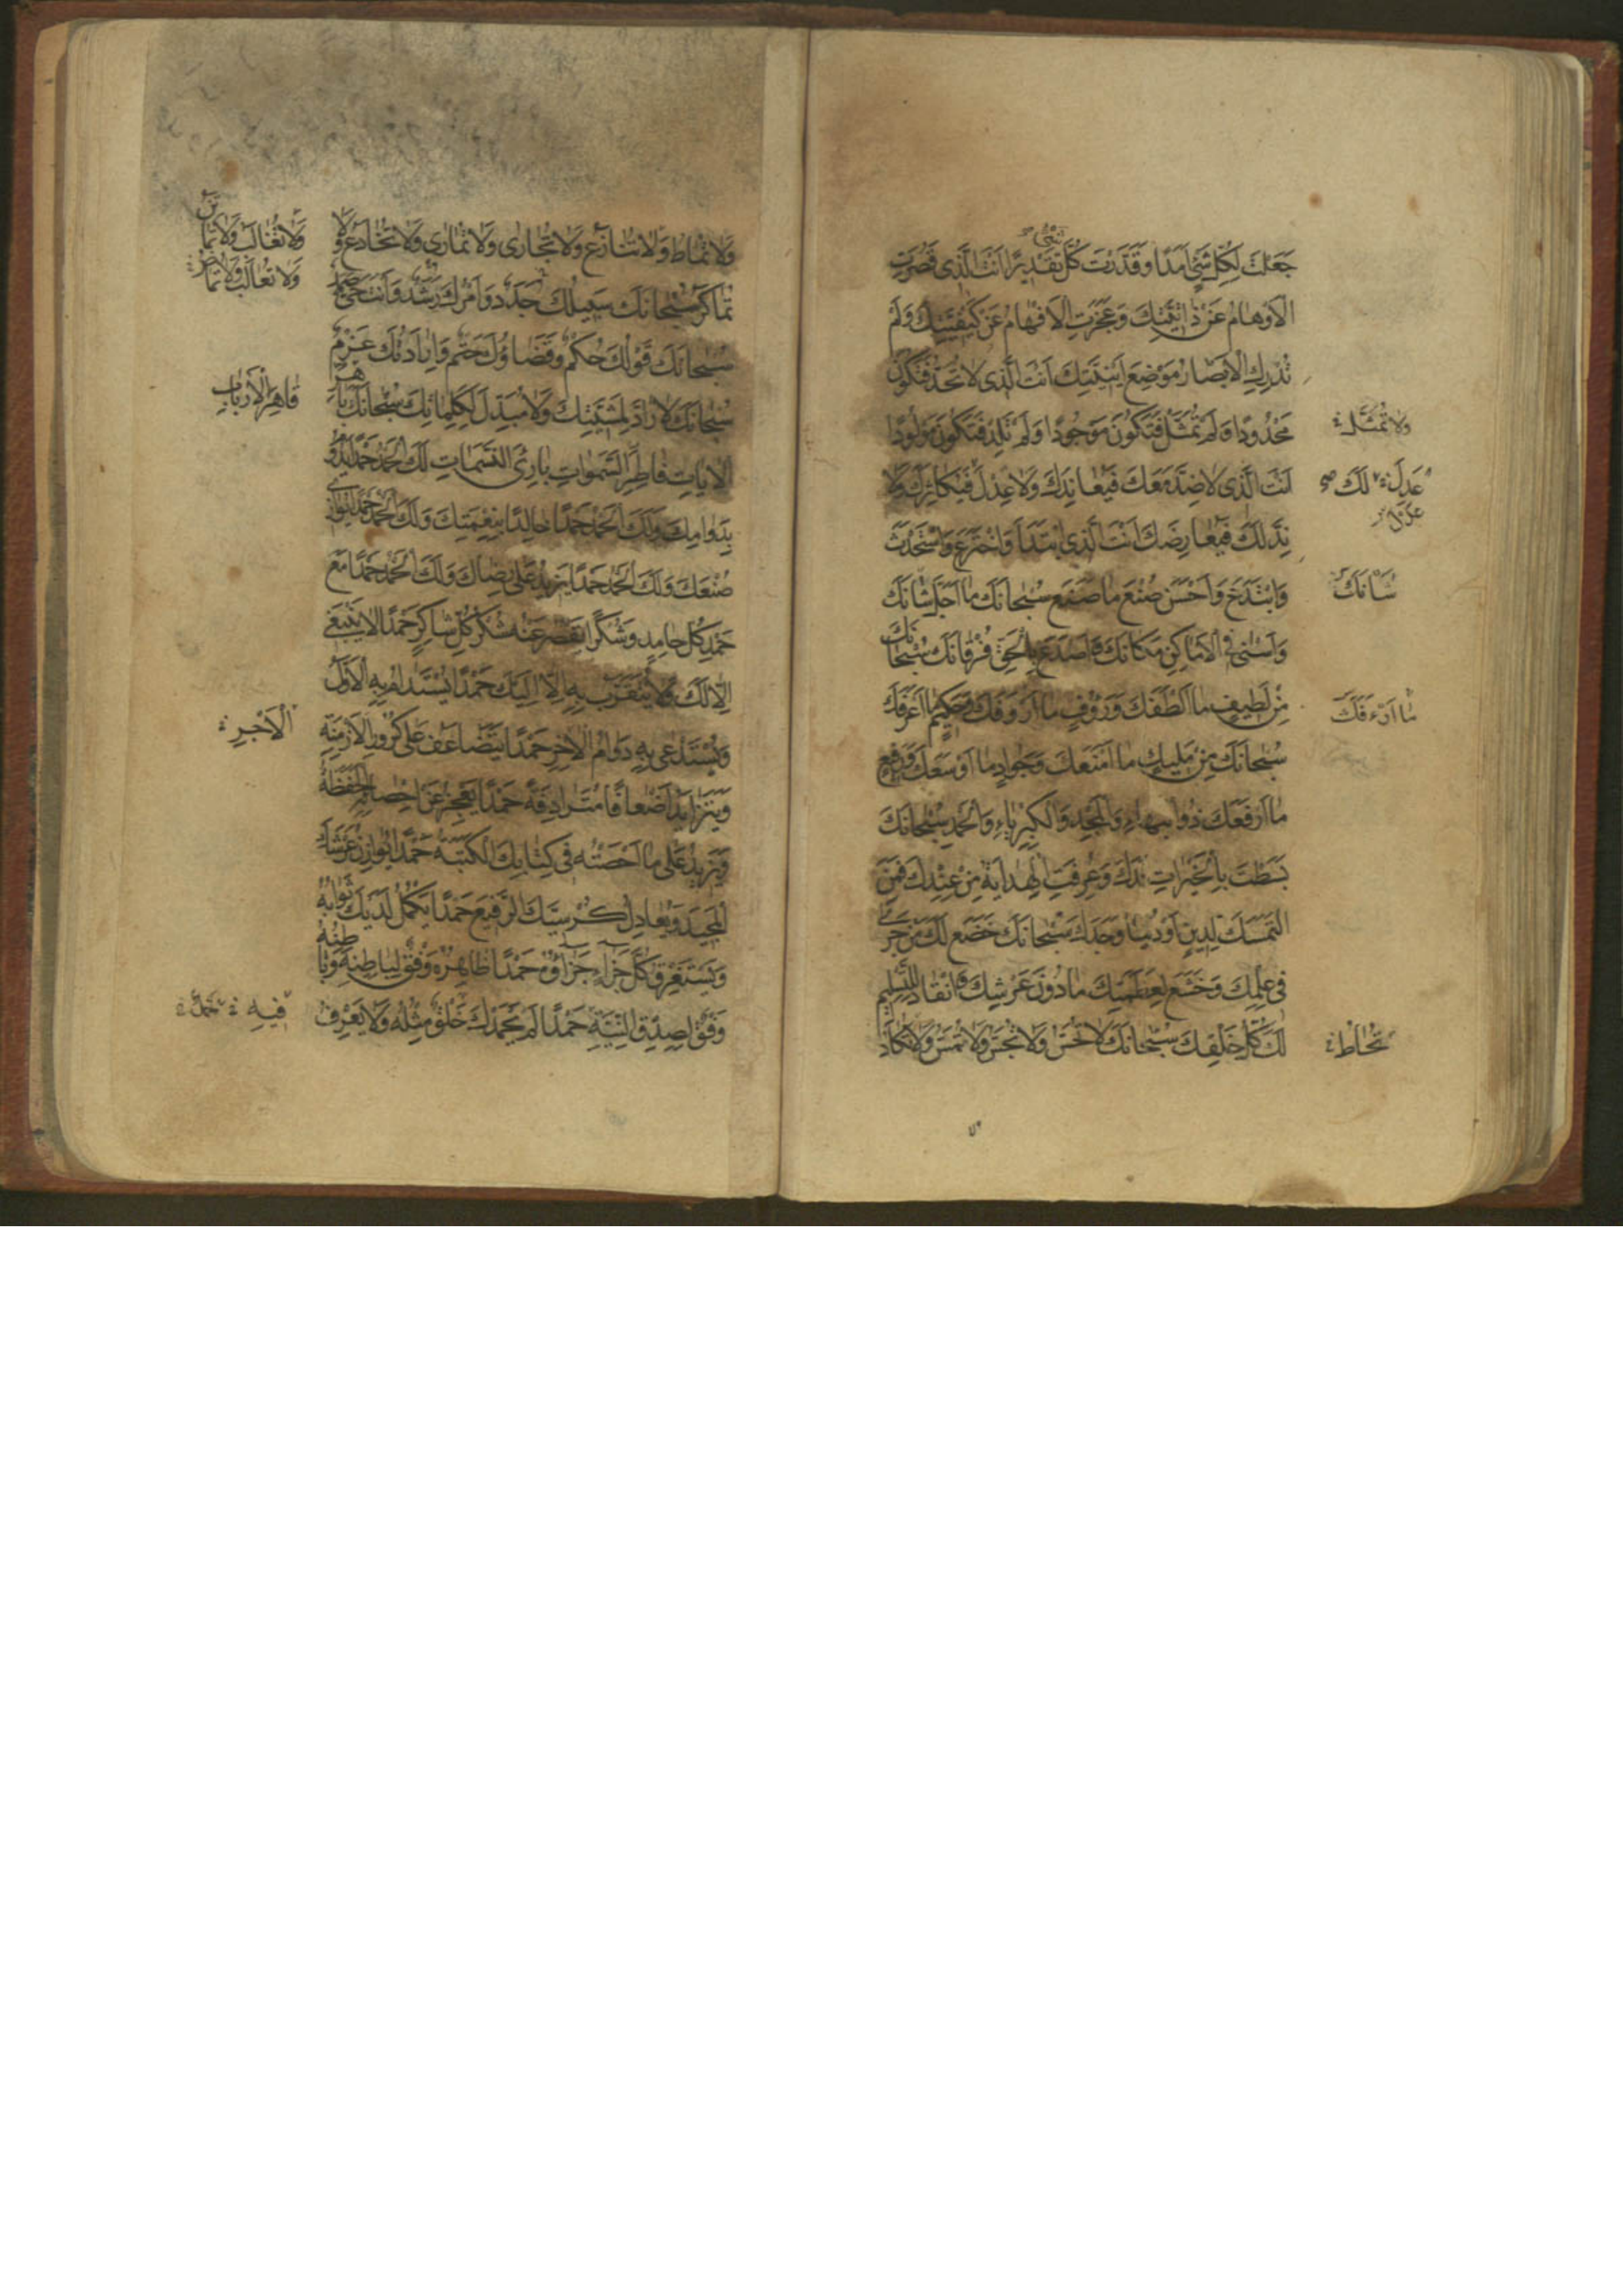 جَعَلْتَ لِكُلِّ شَيْءٍ اَمَدًا وَقَدَّرْتَ كُلَّ تَقْدِيرًا اَنْتَ الَّذِى قَصُرَتِ
الْاَوْهَامُ عَنْ ذَاتِيَّتِكَ وَعَجَزَتِ الْاَفْهَامُ عَنْ كَيْفِيَّتِكَ وَلَمْ
تُدْرِكِ الْاَبْصَارُ مَوْضِعَ اَيْنِيَّتِكَ اَنْتَ الَّذِى لَا تُحَدُّ فَتَكُونَ
مَحْدُودًا وَلَمْ تُمَثَّلْ فَتَكُونَ مَوْجُودًا وَلَمْ تَلِدْ فَتَكُونَ مَوْلُودًا
وَلَا تُمَثَّلُ
اَنْتَ الَّذِى لَا ضِدَّ مَعَكَ فَيُعَانِدَكَ وَلَا عِدْلَ فَيُكَاثِرَكَ وَلَا
عَدِلَ لَكَ
نِدَّ لَكَ فَيُعَارِضَكَ اَنْتَ الَّذِى ابْتَدَاَ وَاخْتَرَعَ وَاسْتَحْدَثَ
وَابْتَدَعَ وَاَحْسَنَ صُنْعَ مَا صَنَعَ سُبْحَانَكَ مَا اَجَلَّ شَانَكَ
شَانَكَ
وَاَسْنٰى فِى الْاَمَاكِنِ مَكَانَكَ وَاَصْدَعَ بِالْحَقِّ فُرْقَانَكَ سُبْحَانَكَ
مِنْ لَطِيفٍ مَا اَلْطَفَكَ وَرَؤُفٍ مَا اَرْوَفَكَ وَحَكِيمٍ مَا اَعْرَفَكَ
مَا اَرْءَفَكَ
سُبْحَانَكَ مِنْ مَلِيكٍ مَا اَمْنَعَكَ وَجَوَادٍ مَا اَوْسَعَكَ وَرَفِيعٍ
مَا اَرْفَعَكَ ذُو الْبَهَاءِ وَالْمَجْدِ وَالْكِبْرِيَاءِ وَالْحَمْدِ سُبْحَانَكَ
بَسَطْتَ بِالْخَيْرَاتِ يَدَكَ وَعُرِفَتِ الْهِدَايَةُ مِنْ عِنْدِكَ فَمَنِ
الْتَمَسَكَ لِدِينٍ اَوْ دُنْيَا وَجَدَكَ سُبْحَانَكَ خَضَعَ لَكَ مَنْ جَرٰى
فِى عِلْمِكَ وَخَشَعَ لِعَظَمَتِكَ مَا دُونَ عَرْشِكَ وَانْقَادَ لِلتَّسْلِيمِ
لَكَ كُلُّ خَلْقِكَ سُبْحَانَكَ لَا تُحَسُّ وَلَا تُجَسُّ وَلَا تُمَسُّ وَلَا تُكَادُ
تُحَاطُ
وَلَا تُمَاطُ وَلَا تُنَازَعُ وَلَا تُجَارٰى وَلَا تُمَارٰى وَلَا تُخَادَعُ وَلَا
وَلَا تُغَالَبُ
تُمَاكَرُ سُبْحَانَكَ سَبِيلُكَ جَدَدٌ وَاَمْرُكَ رَشَدٌ وَاَنْتَ حَىٌّ صَمَدٌ
سُبْحَانَكَ قَوْلُكَ حُكْمٌ وَقَضَاؤُكَ حَتْمٌ وَاِرَادَتُكَ عَزْمٌ
سُبْحَانَكَ لَا رَادَّ لِمَشِيَّتِكَ وَلَا مُبَدِّلَ لِكَلِمَاتِكَ سُبْحَانَكَ بَاهِرَ
قَاهِرَ الْاَرْبَابِ
الْاٰيَاتِ فَاطِرَ السَّمٰوَاتِ بَارِئَ النَّسَمَاتِ لَكَ الْحَمْدُ حَمْدًا يَدُومُ
بِدَوَامِكَ وَلَكَ الْحَمْدُ حَمْدًا خَالِدًا بِنِعْمَتِكَ وَلَكَ الْحَمْدُ حَمْدًا يُوَازِى
صُنْعَكَ وَلَكَ الْحَمْدُ حَمْدًا يَزِيدُ عَلٰى رِضَاكَ وَلَكَ الْحَمْدُ حَمْدًا مَعَ
حَمْدِ كُلِّ حَامِدٍ وَشُكْرًا يَقْصُرُ عَنْهُ شُكْرُ كُلِّ شَاكِرٍ حَمْدًا لَا يَنْبَغِى
اِلَّا لَكَ وَلَا يُتَقَرَّبُ بِهِ اِلَّا اِلَيْكَ حَمْدًا يُسْتَدَامُ بِهِ الْاَوَّلُ
وَيُسْتَدْعٰى بِهِ دَوَامُ الْاٰخِرِ حَمْدًا يَتَضَاعَفُ عَلٰى كُرُورِ الْاَزْمِنَةِ
الْاَجْرِ
وَيَتَزَايَدُ اَضْعَافًا مُتَرَادِفَةً حَمْدًا يَعْجِزُ عَنْ اِحْصَائِهِ الْحَفَظَةُ
وَيَزِيدُ عَلٰى مَا اَحْصَتْهُ فِى كِتَابِكَ الْكَتَبَةُ حَمْدًا يُوَازِنُ عَرْشَكَ
الْمَجِيدَ وَيُعَادِلُ كُرْسِيَّكَ الرَّفِيعَ حَمْدًا يَكْمُلُ لَدَيْكَ ثَوَابُهُ
وَيَسْتَغْرِقُ كُلَّ جَزَاءٍ جَزَاؤُهُ حَمْدًا ظَاهِرُهُ وَفْقٌ لِبَاطِنِهِ وَبَاطِنُهُ
وَفْقٌ لِصِدْقِ النِّيَّةِ حَمْدًا لَمْ يَحْمَدْكَ خَلْقٌ مِثْلَهُ وَلَا يَعْرِفُ
فِيهِ